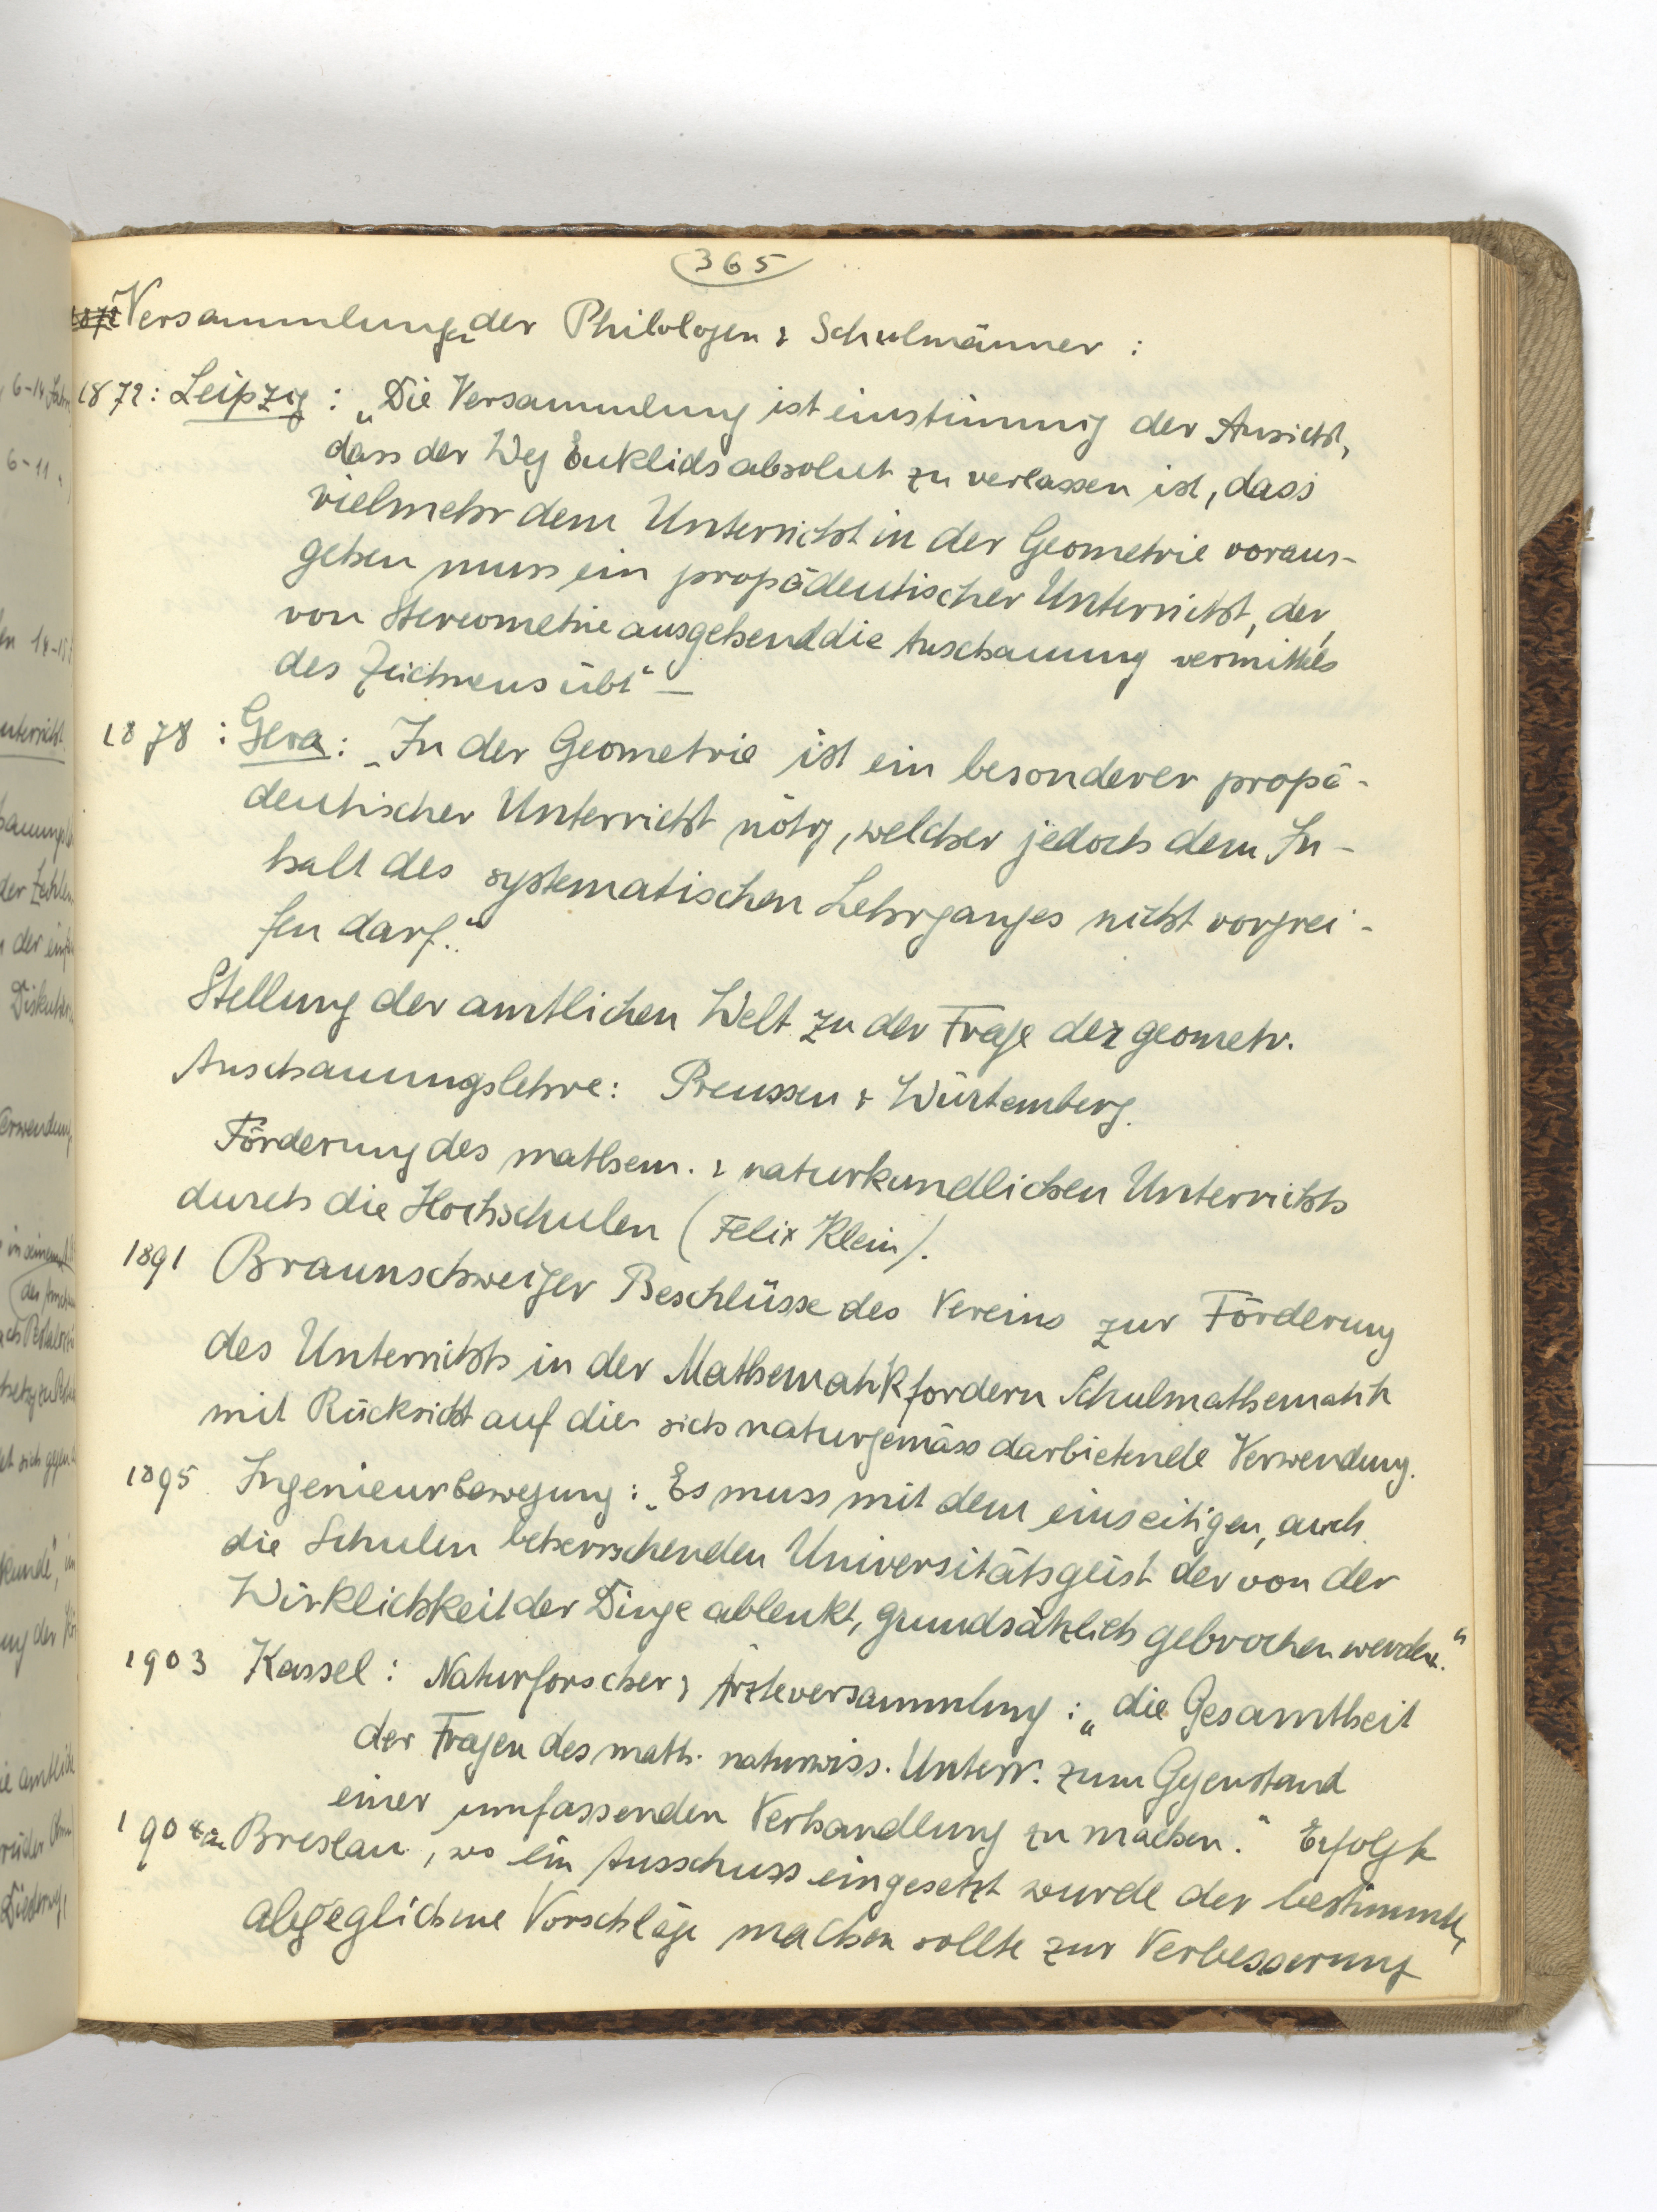 365
1872 Versammlungen der Philologen & Schulmänner :
1872 : Leipzig : „Die Versammlung ist einstimmig der Ansicht,
dass der Weg Euklids absolut zu verlassen ist, dass
vielmehr dem Unterricht in der Geometrie voraus-
gehen muss ein propädeutischer Unterricht, der,
von Stereometrie ausgehend die Anschauung vermittels
des Zeichnens übt" —
1878 : Gera : „In der Geometrie ist ein besonderer propä-
deutischer Unterricht nötig, welcher jedoch dem In-
halt des systematischen Lehrganges nicht vorgrei-
fen darf."
Stellung der amtlichen Welt zu der Frage der geometr.
Anschauungslehre : Preussen & Würtemberg.
Förderung des mathem. & naturkundlichen Unterrichts
durch die Hochschulen (Felix Klein).
1891 Braunschweiger Beschlüsse des Vereins zur Förderung
des Unterrichts in der Mathematik fordern Schulmathematik
mit Rücksicht auf die sich naturgemäss darbietende Verwendung.
1895 Ingenieurbewegung : „Es muss mit dem einseitigen, auch
die Schulen beherrschenden Universitätsgeist der von der
Wirklichkeit der Dinge ablenkt, grundsätzlich gebrochen werden."
1903 Kassel : Naturforscher & Ärzteversammlung : „die Gesamtheit
der Fragen des math. naturwiss. Unterr. zum Gegenstand
einer umfassenden Verhandlung zu machen." Erfolgte
1904 in Breslau, wo ein Ausschuss eingesetzt wurde der bestimmte,
abgeglichene Vorschläge machen sollte zur Verbesserung